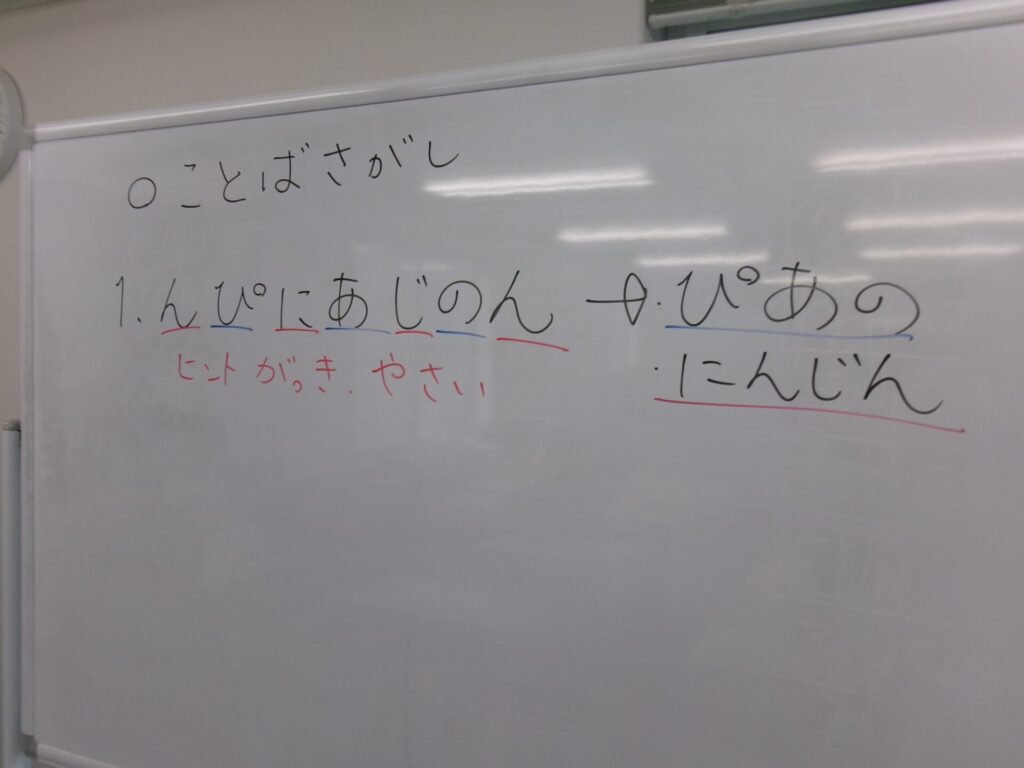 ○ ことばさがし
1. んぴにあじのん → ・ぴあの
ヒント がっき. やさい ・にんじん